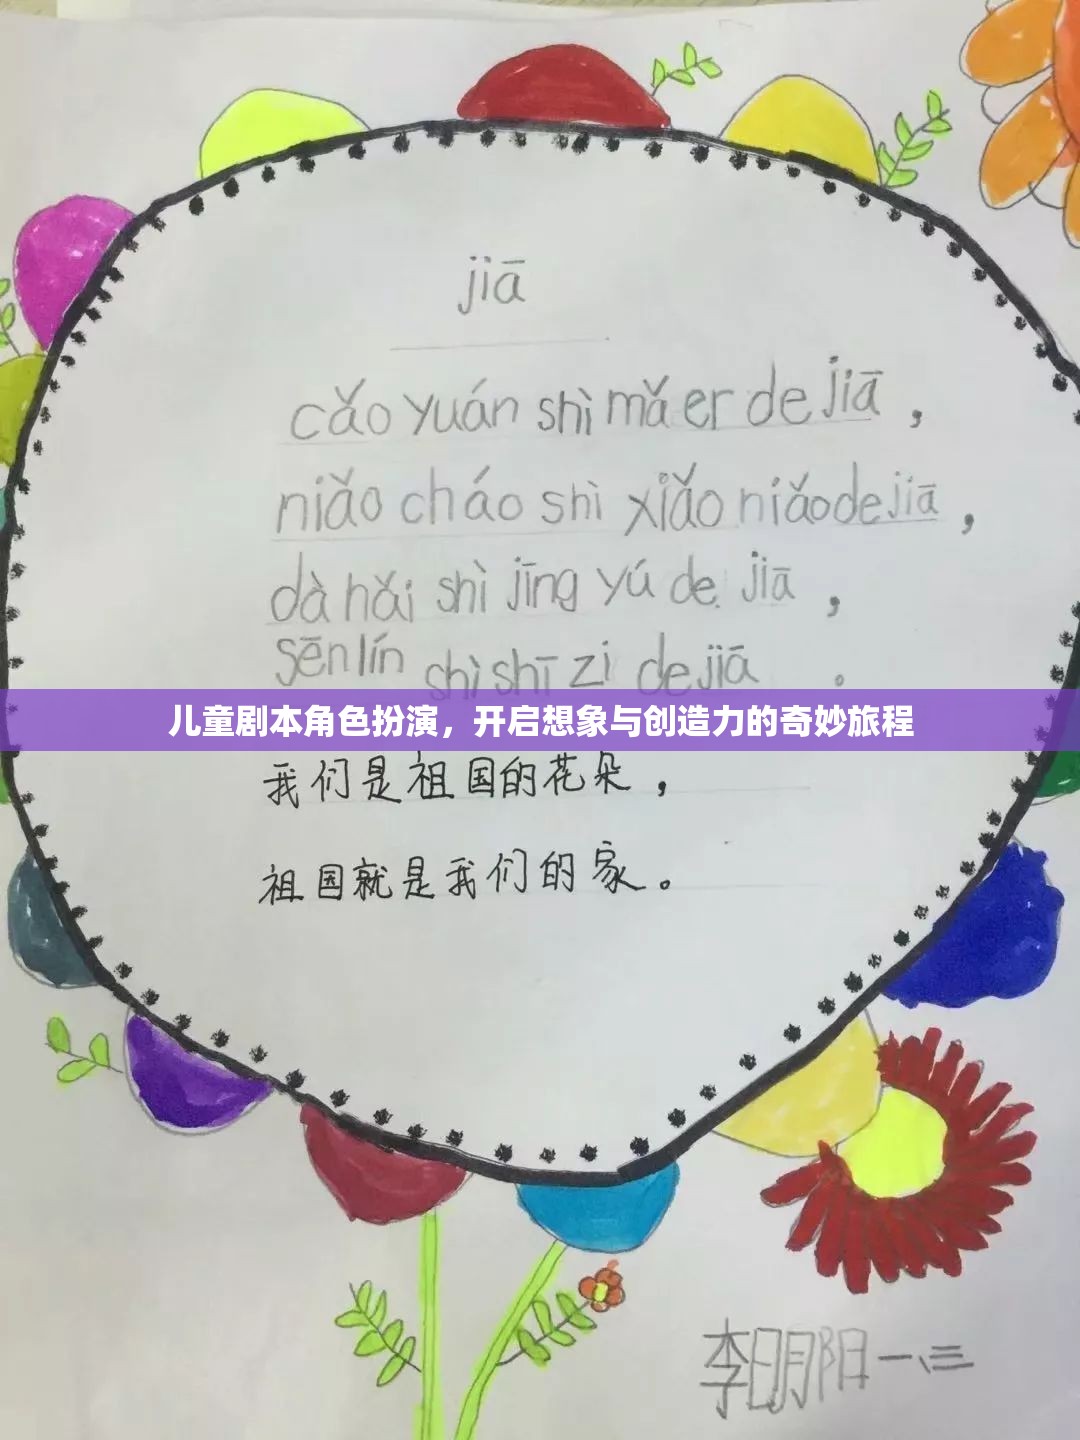 jiā
cǎo yuán shì mǎ er de jiā，
niǎo cháo shì xiǎo niǎo de jiā，
dà hǎi shì jīng yú de jiā，
sēn lín shì shī zi de jiā。
儿童剧本角色扮演，开启想象与创造力的奇妙旅程
我们是祖国的花朵，
祖国就是我们的家。
李明阳 一、三